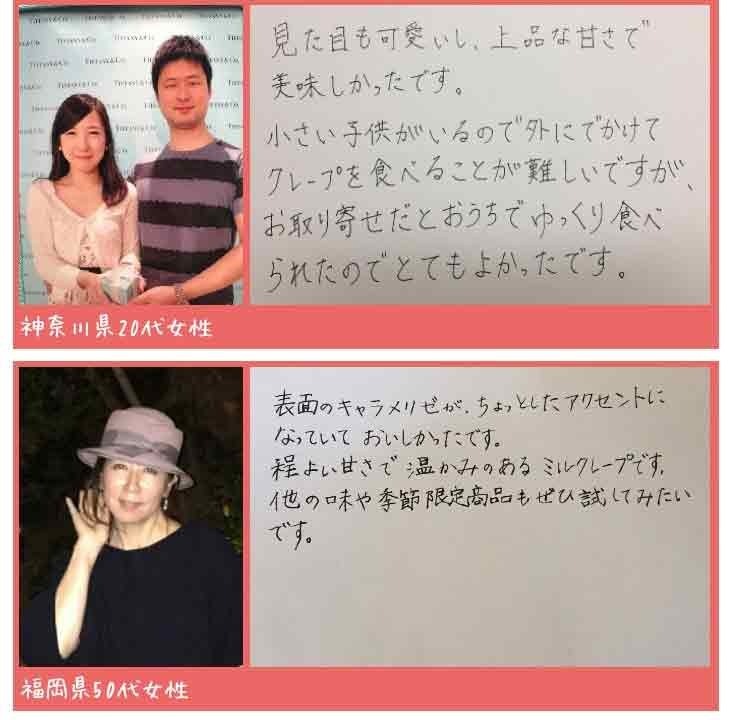 TIFFANY&CO.
見た目も可愛いし、上品な甘さで
美味しかったです。
小さい子供がいるので外にでかけて
クレープを食べることが難しいですが、
お取り寄せだとおうちでゆっくり食べ
られたのでとてもよかったです。
神奈川県20代女性
表面のキャラメリゼが、ちょっとしたアクセントに
なっていて おいしかったです。
程よい甘さで 温かみのある ミルクレープです。
他の味や季節限定商品もぜひ試してみたい
です。
福岡県50代女性